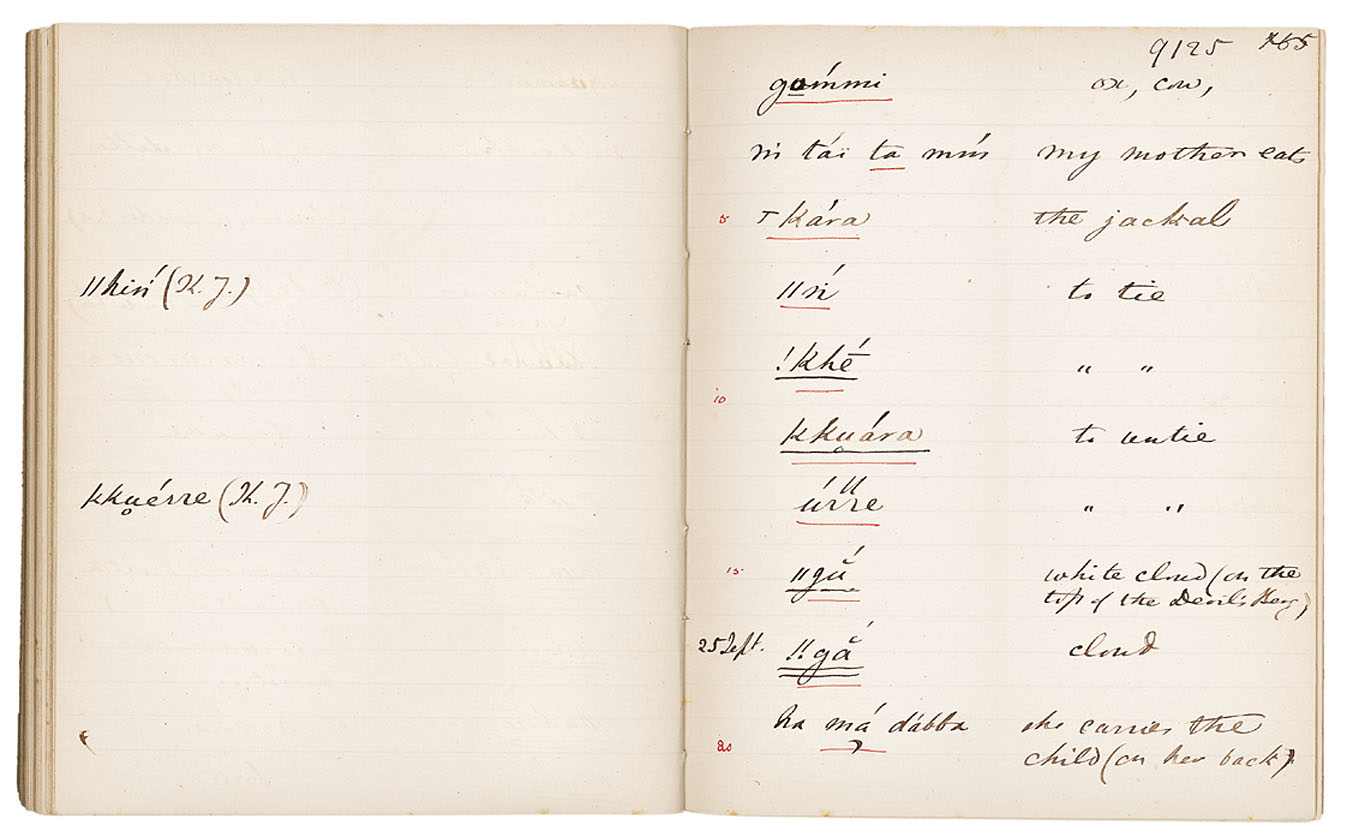 ǁhiń (K. J.)
kku̥érre (K. J.)
9125
go̲ḿmi ox, cow,
ń táï ta mḿ my mother eats
5 T kára the jackal
ǁń to tie
!khé " "
10
kku̥ára to untie
úrre " "
15 ǁgú white cloud (on the
top of the Devil's Berg)
25 Sept. !!gá cloud
ha má dábba she carries the
20 child (on her back)